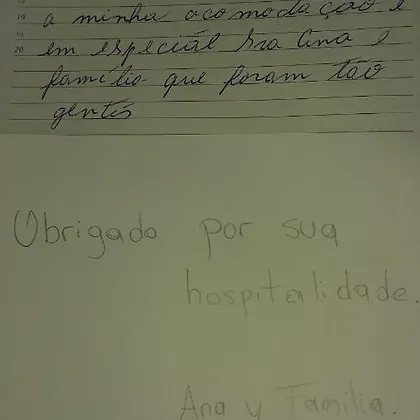 19 a minha acomodação e
20 em especiál Sra Ana e
família que foram tão
gentís
Obrigado por sua
hospitalidade.
Ana y Familia.